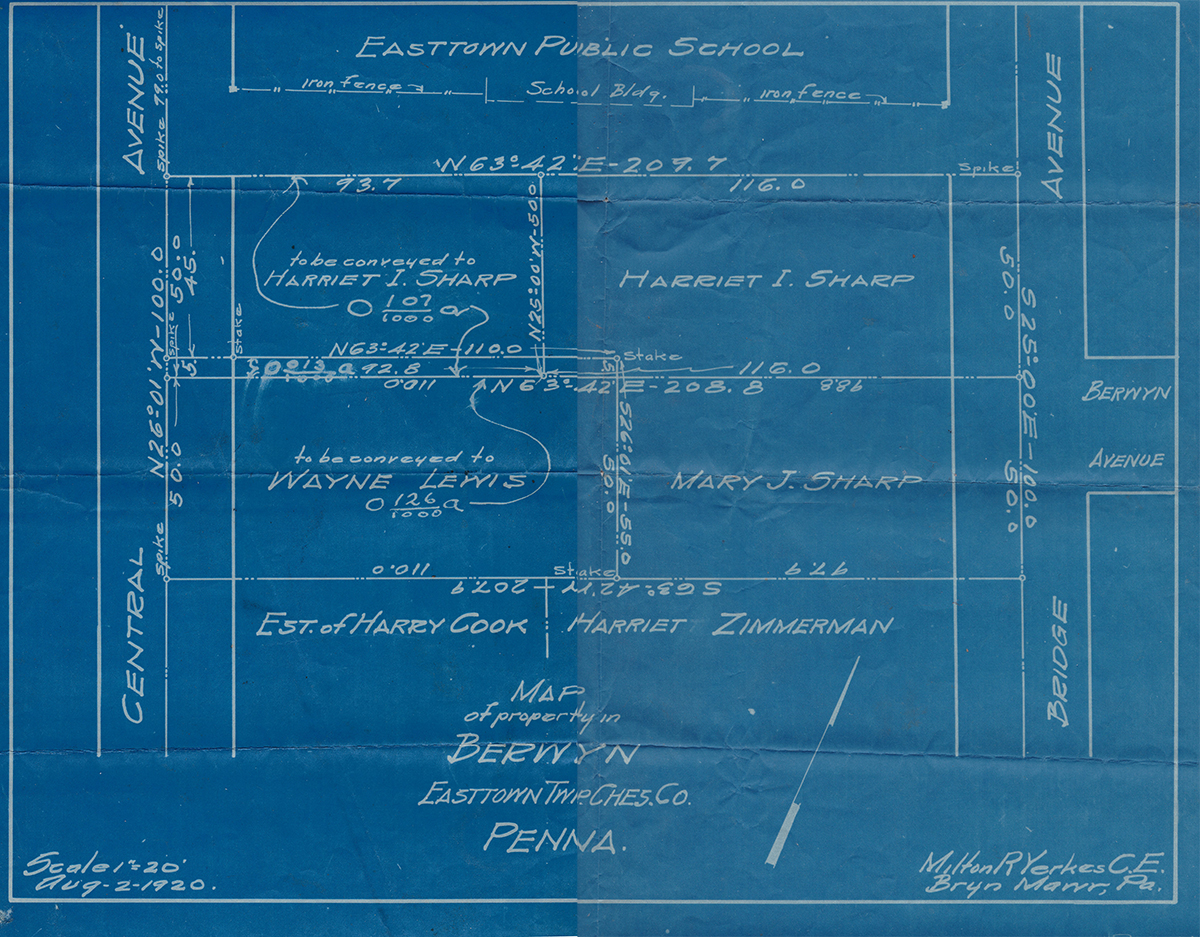 EASTTOWN PUBLIC SCHOOL
iron fence
School Bldg.
iron fence
AVENUE
Spike 79.0 to spike
AVENUE
N 63°42' E - 209.7
Spike
93.7
116.0
N25°00'W-50.0
to be conveyed to
HARRIET I. SHARP
0 107/1000 a
HARRIET I. SHARP
N26°01'W-100.0
Spike 50.0
45.
Spike
Stake
5
50.0
S 25°00'E-100.0
50.0
N63°42'E-110.0
Stake
0 013/1000 a 92.8
5
116.0
110.0
N 63°-42' E - 208.8
98.8
BERWYN
AVENUE
S26°01'E-55.0
50.0
50.0
to be conveyed to
WAYNE LEWIS
0 126/1000 a
MARY J. SHARP
Spike
110.0
Stake
97.9
S63°-42'W-207.9
CENTRAL
EST. of HARRY COOK
HARRIET ZIMMERMAN
BRIDGE
MAP
of property in
BERWYN
EASTTOWN TWP. CHES. CO.
PENNA.
Scale 1"=20'
Aug-2-1920.
Milton R Yerkes C.E.
Bryn Mawr, Pa.